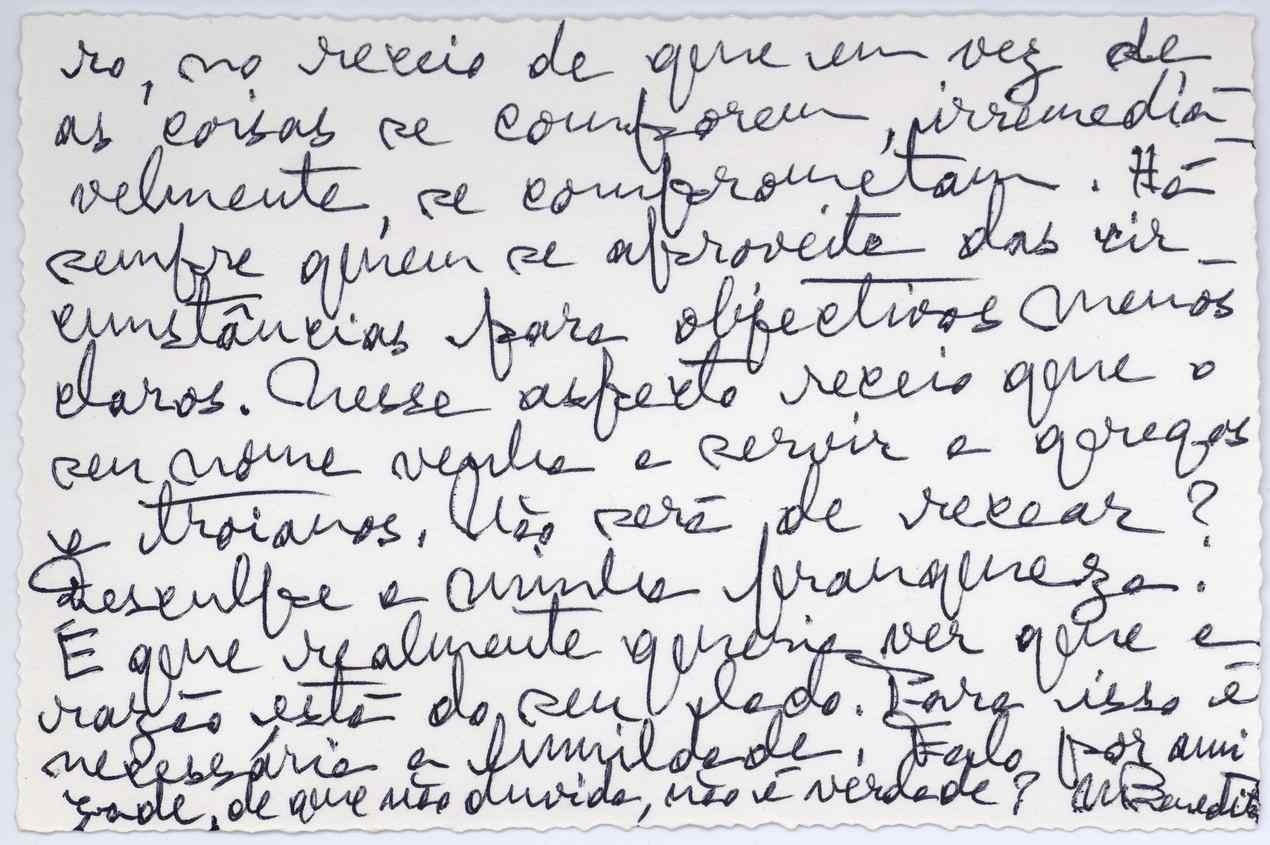 ro, no receio de que em vez de
as coisas se comporem, irremedia-
velmente, se comprometam. Há
sempre quem se aproveite das cir-
cunstâncias para objectivos menos
claros. Nesse aspecto receio que o
seu nome venha a servir a gregos
e troianos. Não será de recear?
Desculpe a minha franqueza.
É que realmente queria ver que a
razão está do seu lado. Para isso é
necessária a humildade. Falo por ami
zade, de que não duvida, não é verdade? M Benedita